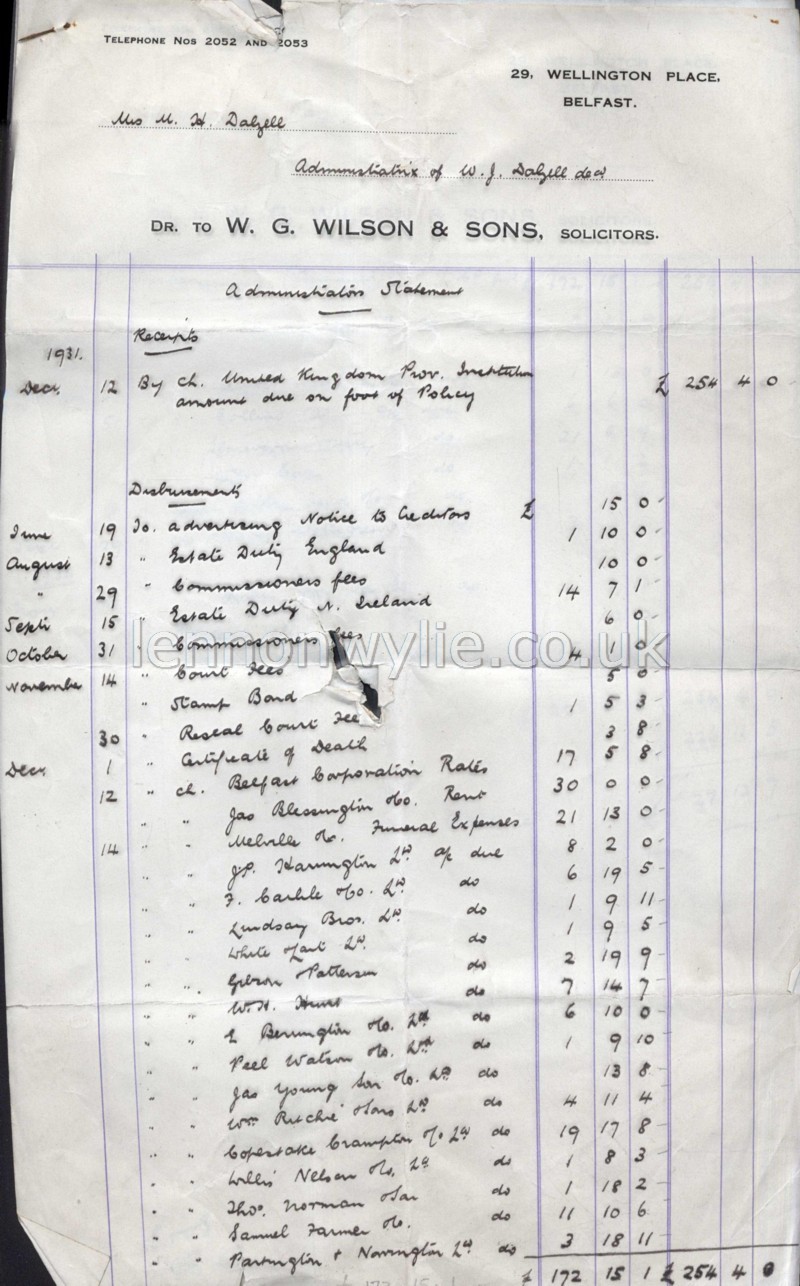 TELEPHONE NOS 2052 AND 2053
29, WELLINGTON PLACE,
BELFAST.
Mrs M. H. Dalzell
Administratrix of W. J. Dalzell decd
DR. TO W. G. WILSON & SONS, SOLICITORS.
Administrators Statement
Receipts
1931.
Decr. 12 By Ch. United Kingdom Prov. Institution £ 254 4 0
amount due on foot of Policy
Disbursements
June 19 To. advertising Notice to Creditors £ 15 0
August 13 " Estate Duty England 1 10 0
" 29 " Commissioners fees 10 0
Septr 15 " Estate Duty N. Ireland 14 7 1
October 31 " Commissioners fees 6 0
November 14 " Court Fees 4 1 0
" Stamp Bond 5 0
30 " Reseal Court Fee 1 5 3
Decr. 1 " Certificate of Death 3 8
12 " Ch. Belfast Corporation Rates 17 5 8
" " Jas Blessington &Co. Rent 30 0 0
14 " " Melville &Co. Funeral Expenses 21 13 0
" " J.P. Harrington Ld a/c due 8 2 0
" " F. Carlile &Co. Ld do 6 19 5
" " Lindsay Bros. Ld do 1 9 11
" " White Ld. do 1 9 5
" " Gibson Patterson do 2 19 9
" " W.H. do 7 14 7
" " E Berrington &Co. Ld do 6 10 0
" " Peel Watson &Co. Ld do 1 9 10
" " Jas Young Son &Co. Ld do 13 8
" " Wm Ritchie &Sons Ld do 4 11 4
" " Copestake Crampton &Co Ld do 19 17 8
" " Willis Nelson &Co. Ld do 1 8 3
" " Thos. Norman &Son do 1 18 2
" " Samuel Farmer &Co. do 11 10 6
" " Partington & Norrington Ld do 3 18 11
£ 172 15 1 £ 254 4 0
lennonwylie.co.uk